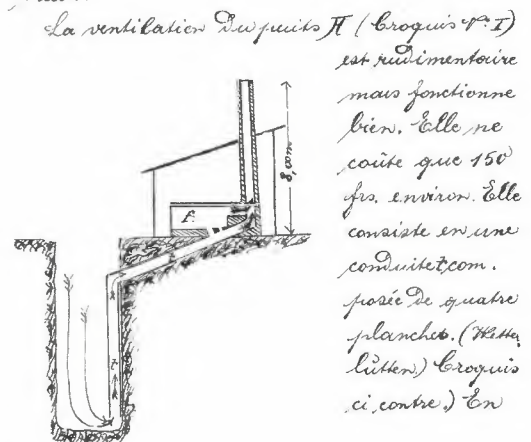 La ventilation du puits A (Croquis No. I)
est rudimentaire
mais fonctionne
bien. Elle ne
coûte que 150
frs. environ. Elle
consiste en une
conduite t, com-
posée de quatre
planches. (Wetter
lütten) Croquis
ci, contre.) En
8,00m
f.
t